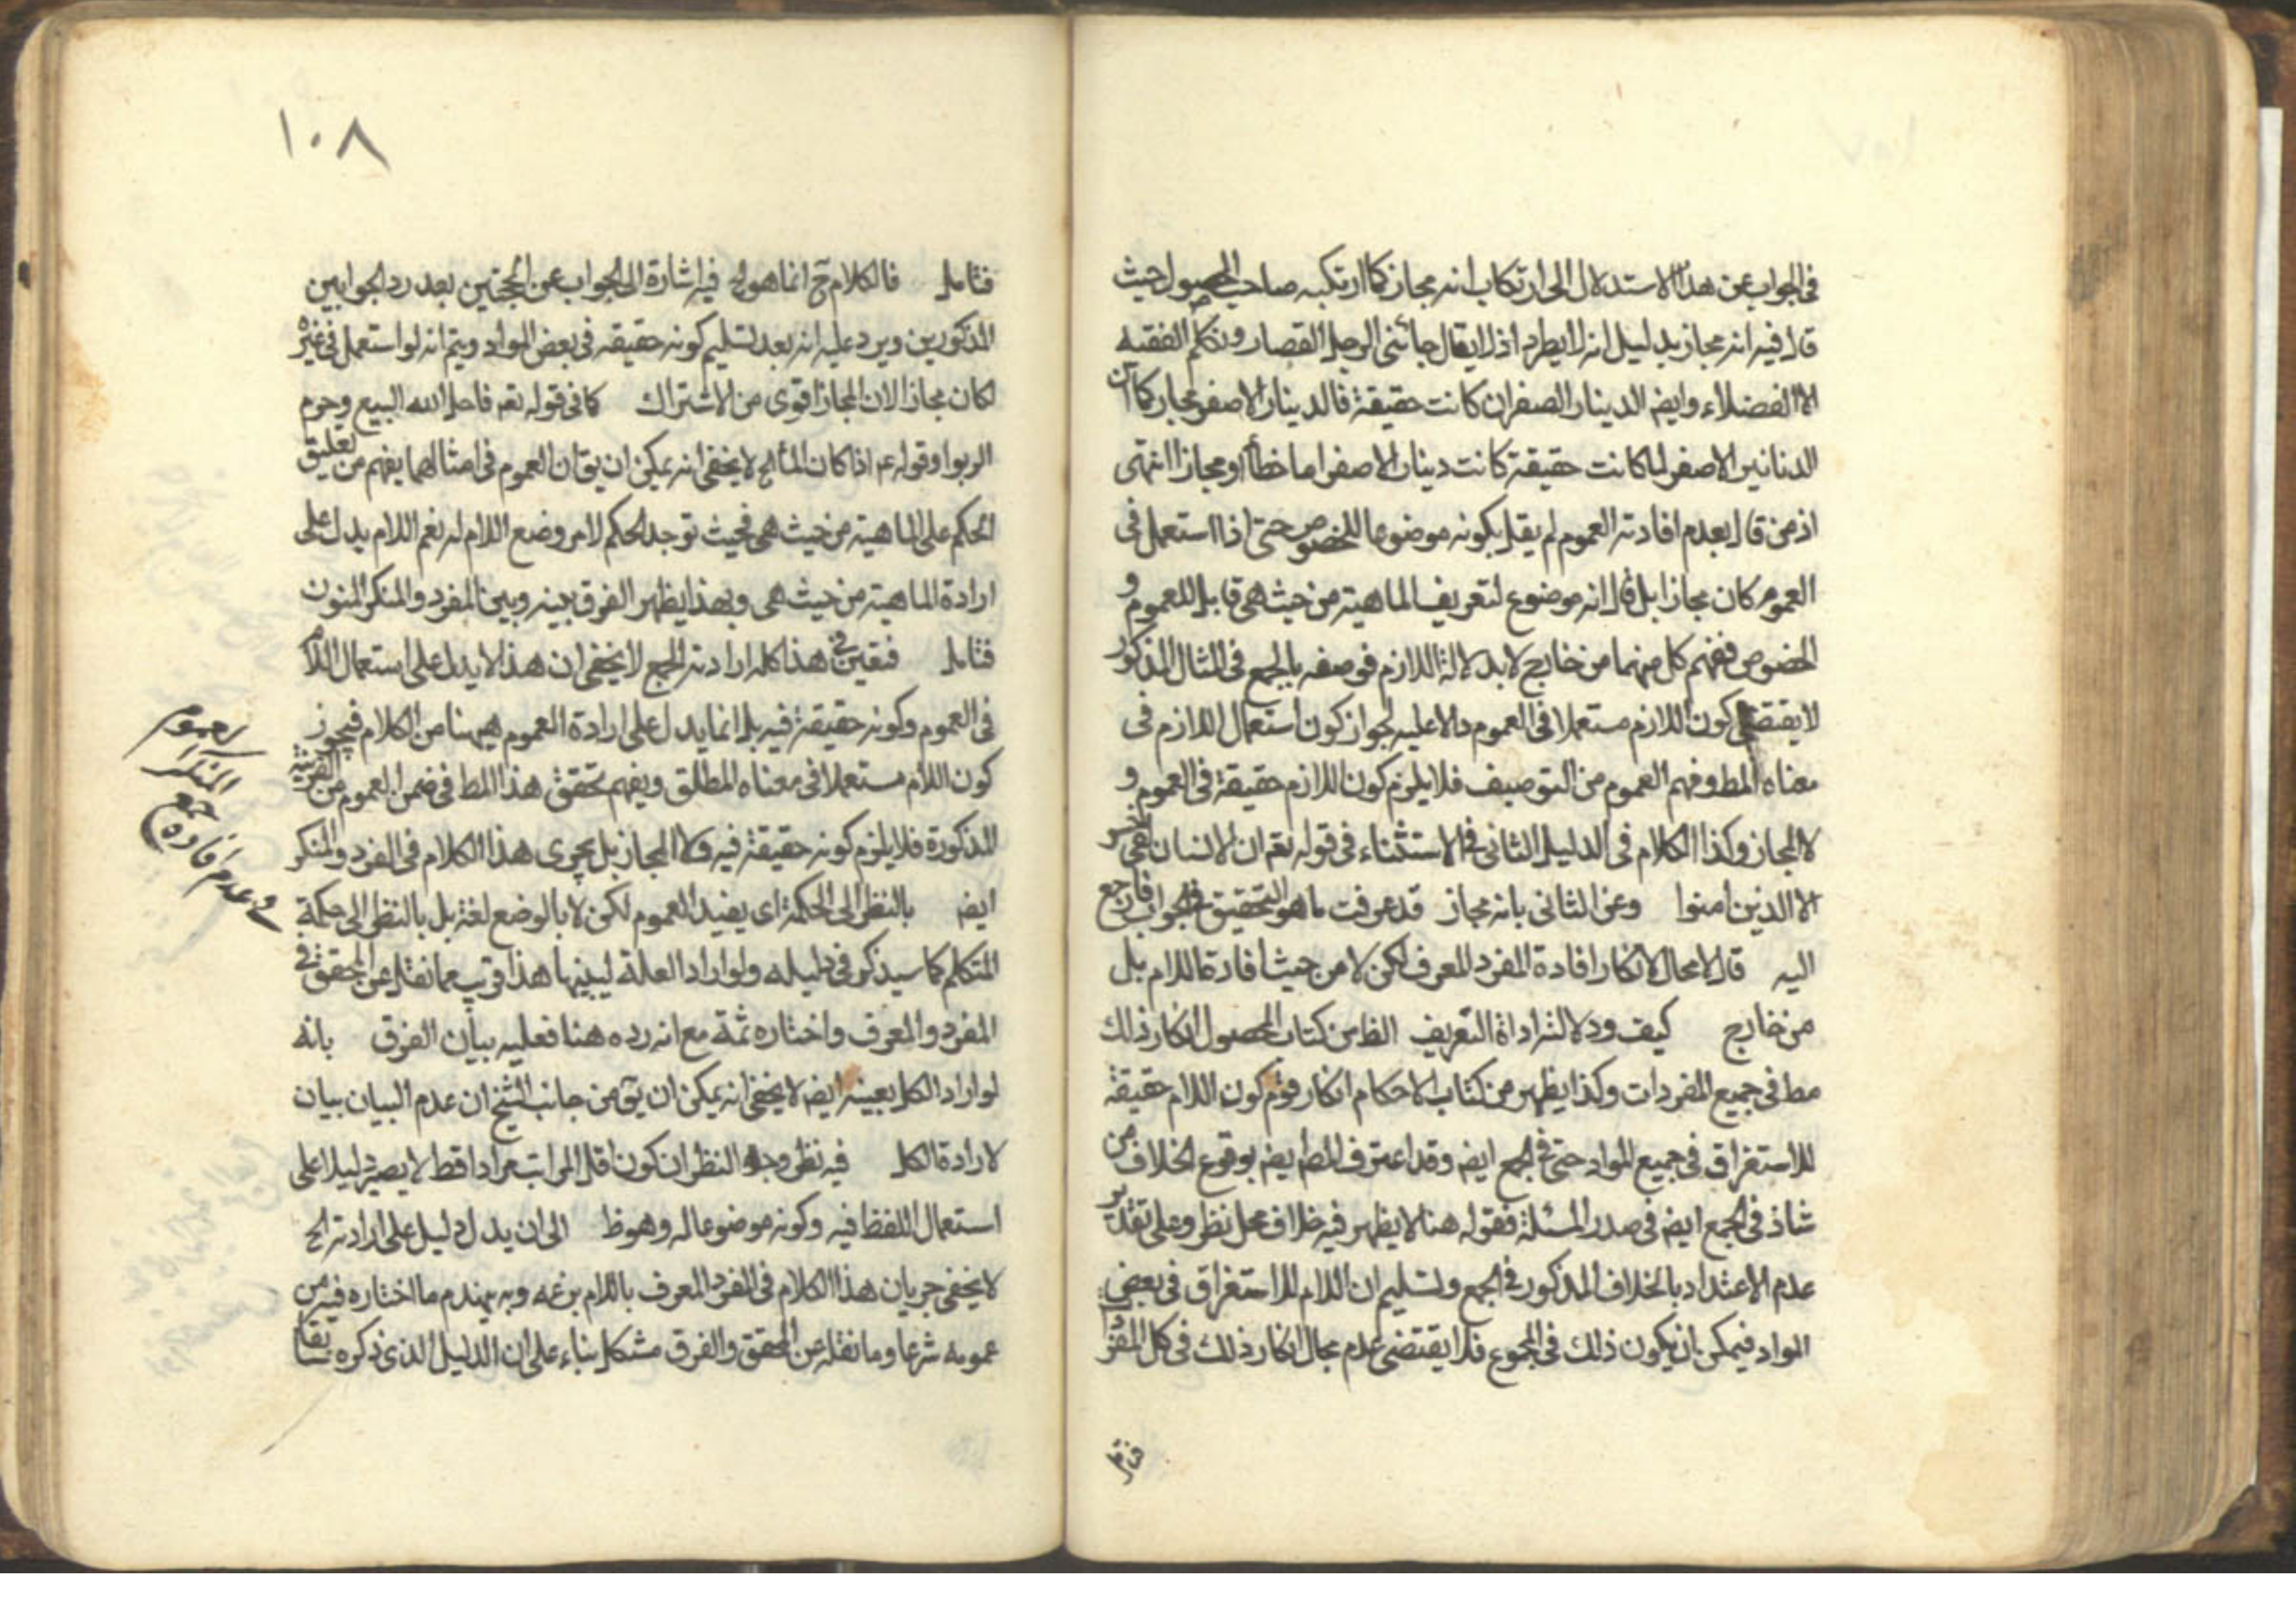 في الجواب عن هذا الاستدلال الى ارتكاب انه مجاز كما ارتكبه صاحب المحصول حيث
قال فيه انه مجاز بدليل انه لا يطرد اذ لا يقال جائني الرجل القصار وتكلم الفقيه
الا الفضلاء وايضا الدينار الصفر ان كانت حقيقة فالدينار الاصفر مجاز كما ان
الدنانير الاصفر لما كانت حقيقة كانت دينار الاصفر اما خطأ او مجازا انتهى
اذ من قال بعدم افادته العموم لم يقل بكونه موضوعا للخصوص حتى اذا استعمل في
العموم كان مجازا بل قال انه موضوع لتعريف الماهية من حيث هي قابل للعموم و
الخصوص ففهم كل منهما من خارج لا بدلالة اللازم فوصفه بالجمع في المثال المذكور
لا يقتضي كون اللازم مستعملا في العموم دالا عليه لجواز كون استعمال اللازم في
معناه المط وفهم العموم من التوصيف فلا يلزم كون اللازم حقيقة في العموم و
لا المجاز وكذا الكلام في الدليل الثاني في الاستثناء في قوله تعم ان الانسان لفي خسر
الا الذين امنوا وعن الثاني بانه مجاز قد عرفت ما هو التحقيق في الجواب فارجع
اليه قال لا مجال لانكار افادة المفرد المعرف لكن لا من حيث افادة اللام بل
من خارج كيف ودلالة اداة التعريف الظ من كتاب المحصول انكار ذلك
مط في جميع المفردات وكذا يظهر من كتاب الاحكام انكار قوم كون اللام حقيقة
للاستغراق في جميع المواد حتى في الجمع ايضا وقد اعترف المص ايضا بوقوع الخلاف من
شاذ في الجمع ايضا في صدر المسئلة فقوله هنا لا يظهر فيه خلاف محل نظر وعلى تقدير
عدم الاعتداد بالخلاف المذكور في الجمع وتسليم ان اللام للاستغراق في بعض
المواد فيمكن ان يكون ذلك في الجموع فلا يقتضي عدم مجال انكار ذلك في كل المفرد
١٠٨
فتامل فالكلام ح انما هو الخ فيه اشارة الى الجواب عن الحجتين بعد رد الجوابين
المذكورين ويرد عليه انه بعد تسليم كونه حقيقة في بعض المواد ويتم انه لو استعمل في غيره
لكان مجازا لان المجاز اقوى من الاشتراك كما في قوله تعم فاحل الله البيع وحرم
الربوا وقوله عم اذا كان الماء الخ لا يخفى انه يمكن ان يق ان العموم في امثالهما يفهم من تعليق
الحكم على الماهية من حيث هي فحيث توجد الحكم لا من وضع اللام له نعم اللام يدل على
ارادة الماهية من حيث هي وبهذا يظهر الفرق بينه وبين المفرد والمنكر المنون
فتامل فتعين في هذا كله ارادته الجمع لا يخفى ان هذا لا يدل على استعمال اللام
في العموم وكونه حقيقة فيه بل انما يدل على ارادة العموم ههنا من الكلام فيجوز
كون اللام مستعملا في معناه المطلق ويفهم تحقق هذا المط في ضمن العموم من القرينة
المذكورة فلا يلزم كونه حقيقة فيه ولا المجاز بل يجرى هذا الكلام في المفرد والمنكر
ايضا بالنظر الى الحكمة اي يفيد العموم لكن لا بالوضع لغة بل بالنظر الى حكمة
المتكلم كما سيذكر في دليله ولو اراد العلة ليبينها هذا قريب مما نقل عن المحقق في
المفرد والمعرف واختاره ثمة مع انه رده هنا فعليه بيان الفرق بانه
لو اراد الكل بعينه ايضا لا يخفى انه يمكن ان يق من جانب الشيخ ان عدم البيان بيان
لارادة الكل فيه نظر وجه النظر ان كون اقل المراتب مرادا قط لا يصير دليلا على
استعمال اللفظ فيه وكونه موضوعا له وهو ظ الى ان يدل دليل على ارادته الخ
لا يخفى جريان هذا الكلام في المفرد المعرف باللام برعه وبه ينهدم ما اختاره فيه من
عمومه شرعا وما نقله عن المحقق والفرق مشكل بناء على ان الدليل الذي ذكره
وعدم افادة
جمع
المنكر
العموم